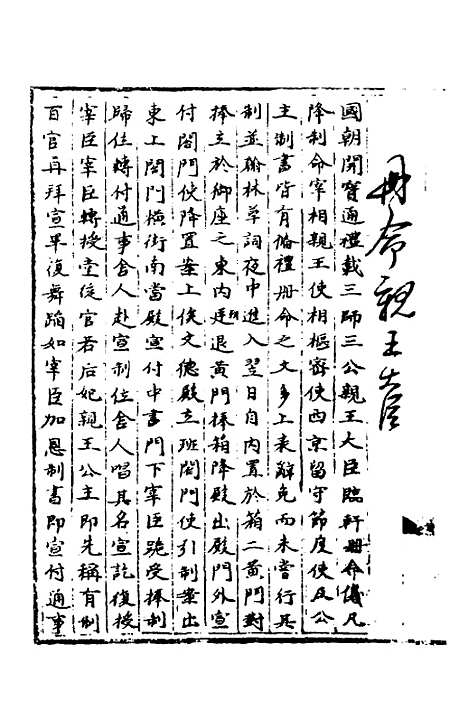 冊命親王大臣
國朝開寳通禮載三師三公親王大臣臨軒冊命儀凡
降制命宰相親王使相樞宻使西京留守節度使及公
主制書皆有俻禮冊命之文多上表辭免而未嘗行其
制並翰林草詞夜中進入翌日自内置於箱二黄門對
捧立於御座之東内廷退黄門捧箱降殿出殿門外宣
付閤門使降置案上俟文德殿立班閤門使引制案出
東上閤門橫街南當殿宣付中書門下宰臣跪受捧制
歸位轉付通事舍人赴宣制位舍人唱其名宣訖復授
宰臣宰臣轉授堂從官若后妃親王公主即先稱有制
百官再拜宣畢復舞蹈如宰臣加恩制書即宣付通事